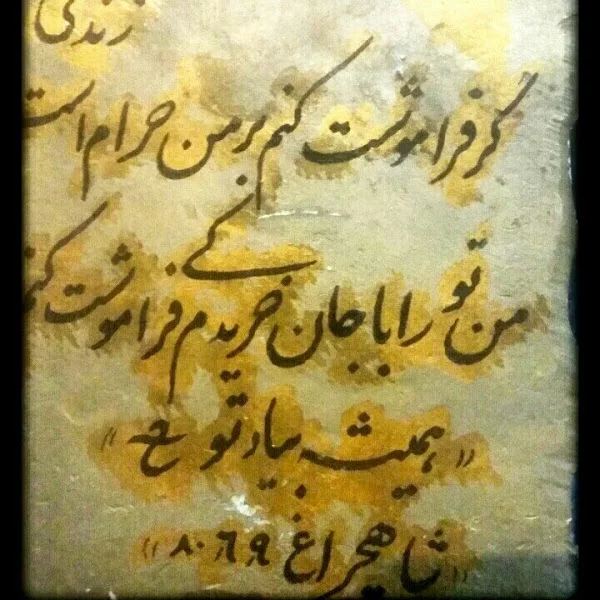 زندگی
گر فراموشت کنم بر من حرام است
من تو را با جان خریدم کی فراموشت کنم
«همیشه بیاد تو ع»
«شاهچراغ ۸۰.۶.۹»